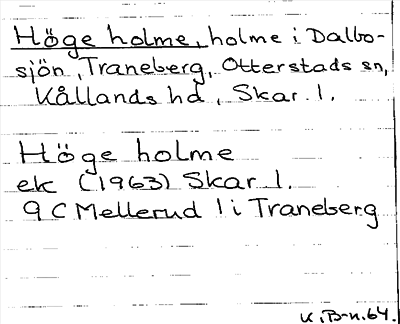 Höge holme, holme i Dalbo-
sjön, Traneberg, Otterstads sn,
Kållands hd, Skar. l.
Höge holme
ek (1963) Skar l.
9 C Mellerud 1 i Traneberg
K. B-n. 64.